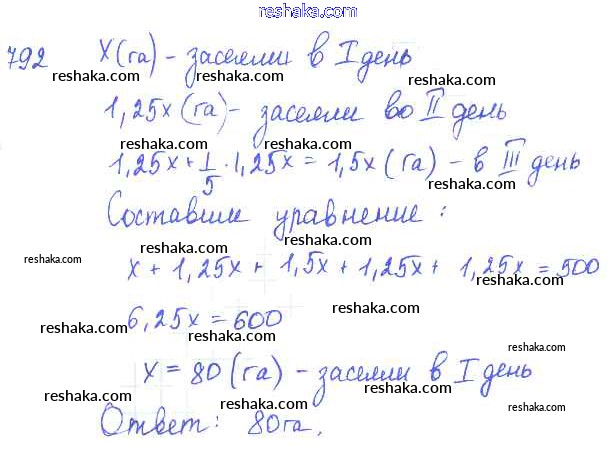 www.reshaka.com
792 x(га) - засеяли в I день
reshaka.com reshaka.com
1,25x(га) - засеяли во II день
reshaka.com reshaka.com
1,25x + 1/5 · 1,25x = 1,5x(га) - в III день
reshaka.com reshaka.com
Составим уравнение:
reshaka.com reshaka.com
reshaka.com
x + 1,25x + 1,5x + 1,25x + 1,25x = 500
reshaka.com reshaka.com
6,25x = 600
reshaka.com
reshaka.com
x = 80 (га) - засеяли в I день
reshaka.com reshaka.com
reshaka.com reshaka.com
Ответ: 80га.
www.reshaka.com